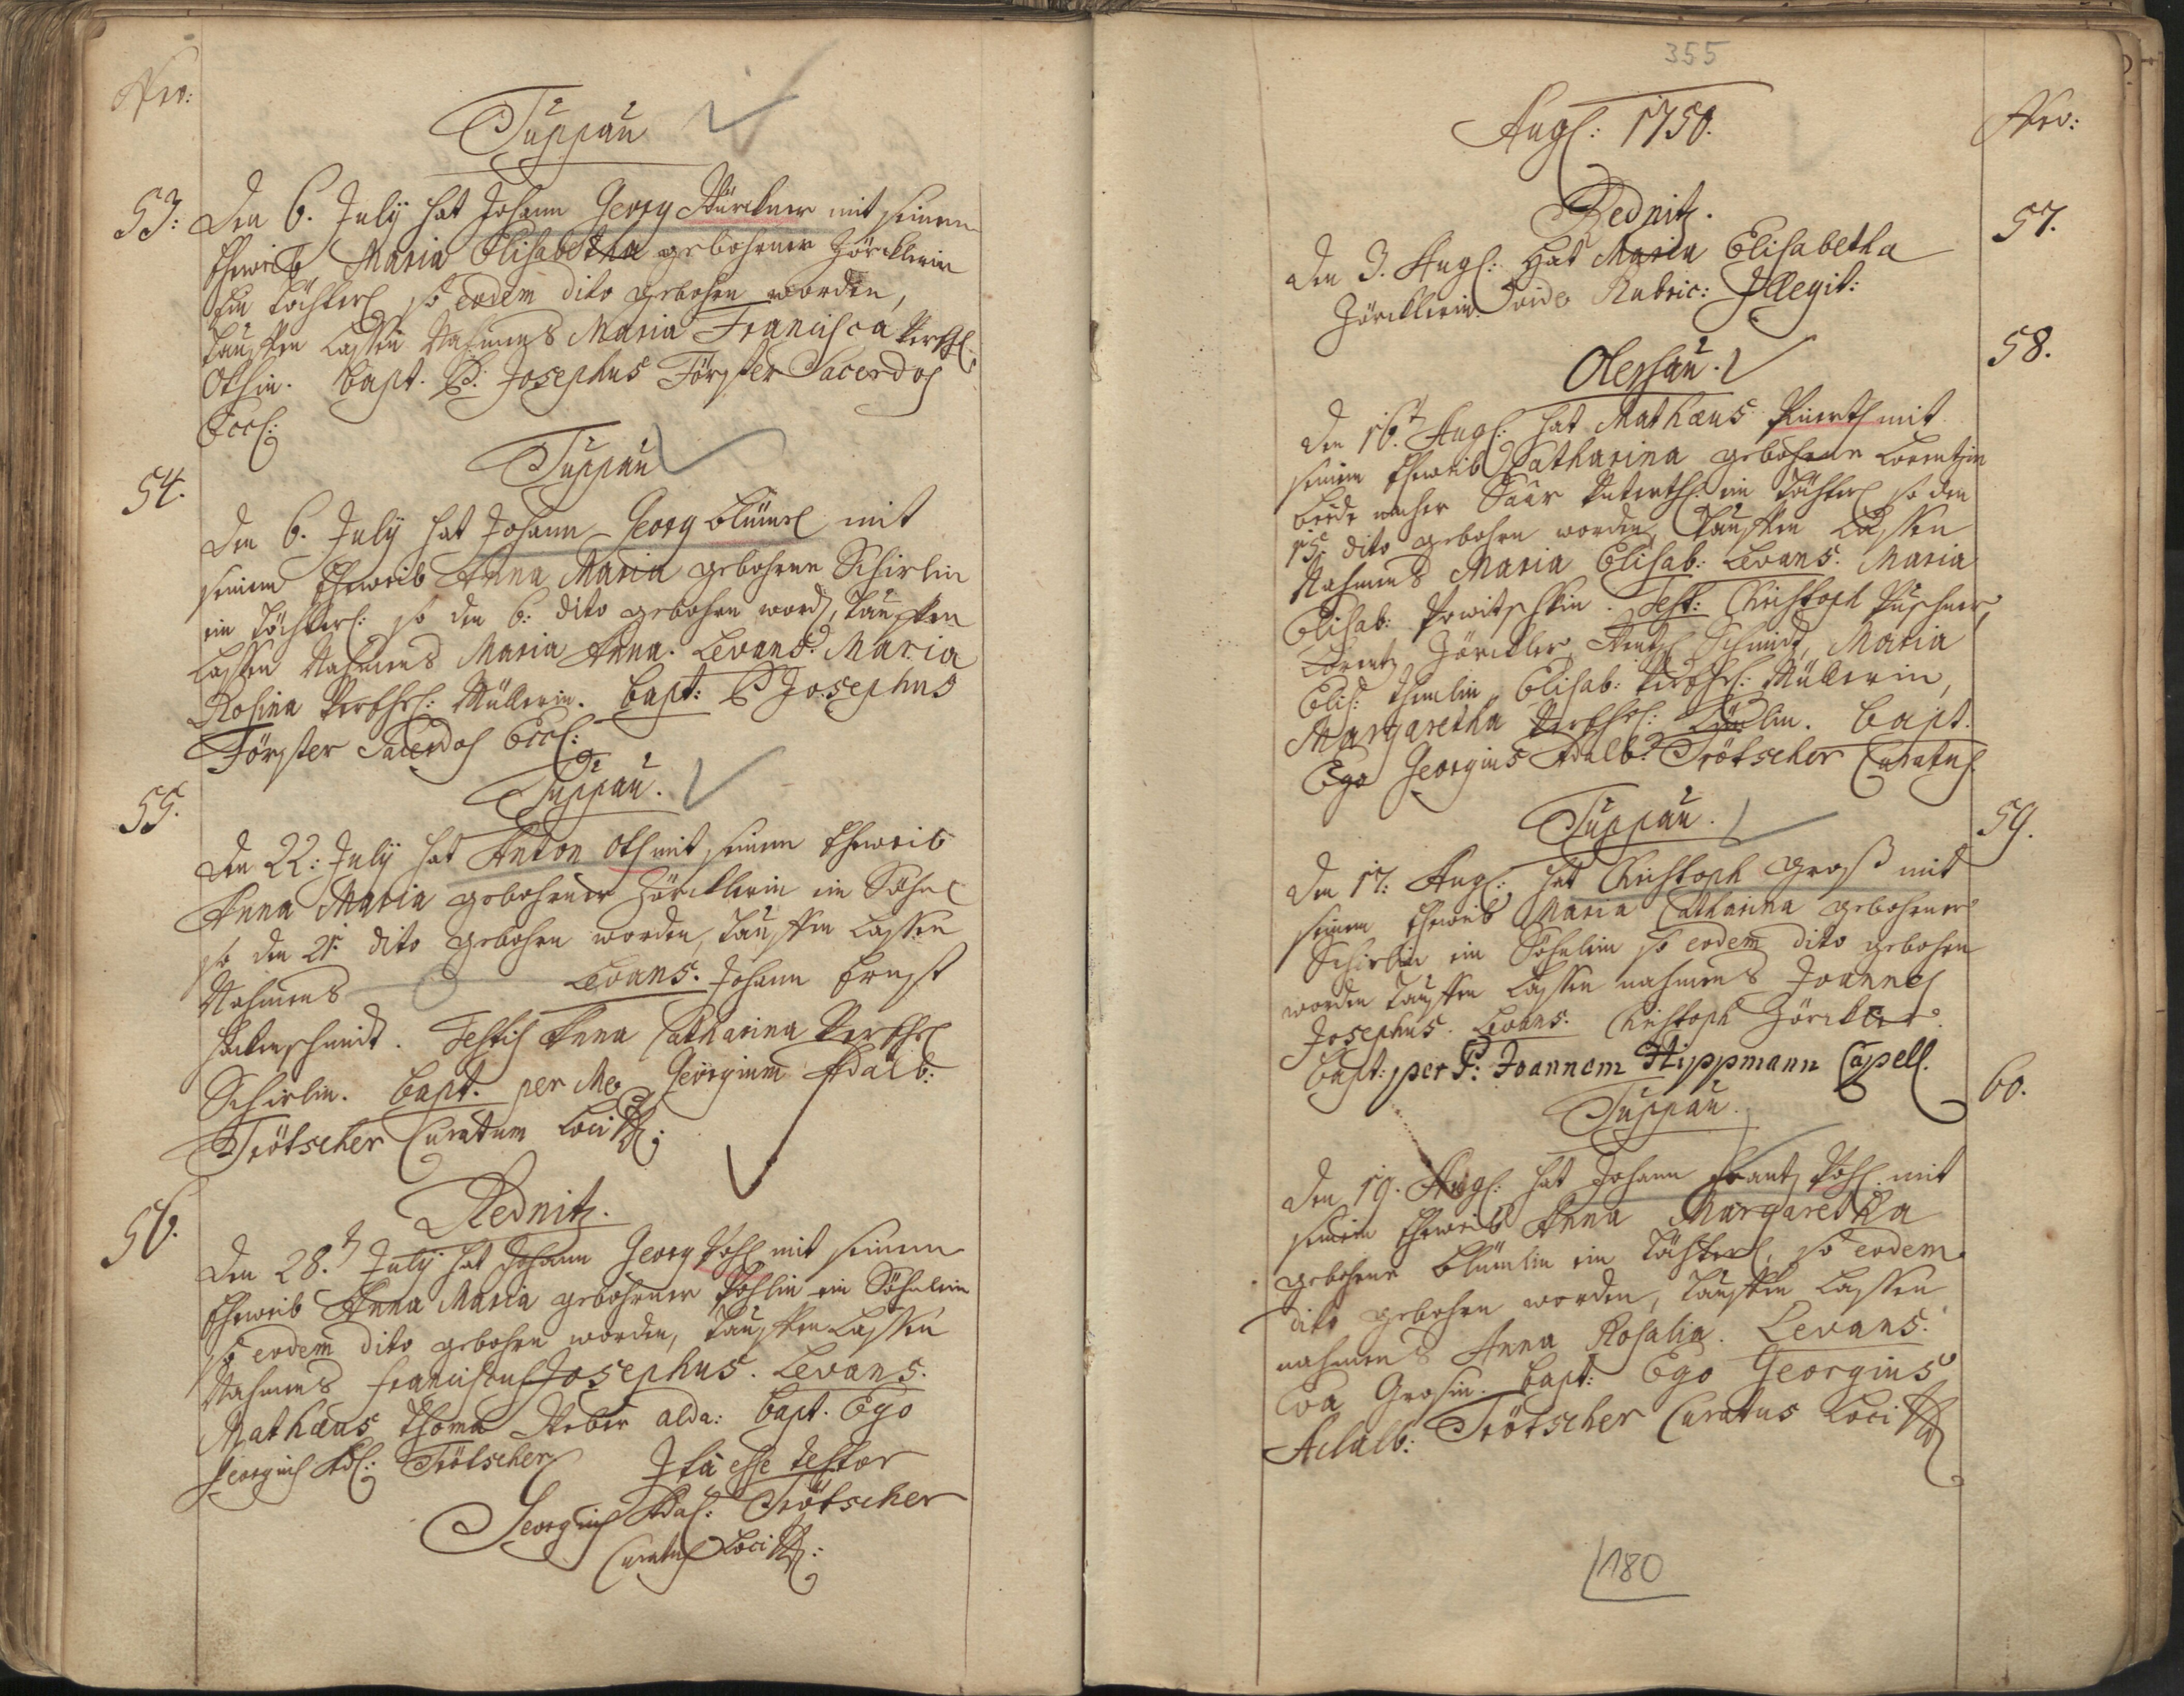 Nro:
Tuppau
53: Den 6. July hat Johann Georg Stürckner mit seinem
Eheweib Maria Elisabetha gebohrner Zörcklerin
Ein Töchterl so eodem dito gebohrn worden,
tauffen lassen Nahmens Maria Francisca
Othin. Bapt. P: Josephus Förster Sacerdos
Eccl:
Tuppau
54. Den 6. July hat Johann Georg Blüml mit
seinem Eheweib Anna Maria gebohrne Schirlin
ein Töchterl: so den 6: dito gebohrn word, tauffen
lassen Nahmens Maria Anna. Levans. Maria
Rosina Müllerin. Bapt: P Josephus
Förster Sacerdos Eccl:
Tuppau.
55. Den 22: July hat Anton Oth mit seinem Eheweib
Anna Maria gebohrner Zörcklerin ein Söhnl
so den 21. dito gebohrn worden, tauffen lassen
Nahmens Levans. Johann Ernst
Hackenschmidt. Testis Anna Catharina
Schirlin. Bapt. per Me Georgium Adalb:
Trötscher Curatum Loci
Rednitz.
56. Den 28. July hat Johann Georg Pohl mit seinem
Eheweib Anna Maria gebohrner Pohlin ein Söhnlein
so eodem dito gebohrn worden, tauffen lassen
Nahmens Franciscus Josephus. Levans.
Mathæus Thoma Weber alda: Bapt. Ego
Georgius Ad: Trötscher
Ita esse testor
Georgius Adal: Trötscher
Curatus Loci
355
Aug: 1750.
Nro:
Rednitz.
57. Den 3. Aug: Hat Maria Elisabetha
Zörcklerin vide Rubric: Illegit:
Olerßau.
58. Den 16. Aug: hat Mathæus mit
seinem Eheweib Catharina gebohrne Lorentzin
beide ein Töchterl so den
15. dito gebohrn worden, tauffen lassen
Nahmens Maria Elisab: Levans. Maria
Elisab: Test: Christoph Püschner,
Lorentz Zörckler, Schmidt, Maria
Elis: Elisab: Müllerin,
Margaretha Bapt.
Ego Georgius Adalb: Trötscher Curatus
Tuppau.
59. Den 17. Aug: hat Christoph Groß mit
seinem Eheweib Maria Catharina gebohrner
Schirlin ein Söhnlein so eodem dito gebohrn
worden tauffen lassen nahmens Joannes
Josephus. Levans. Christoph Zörckler.
Bapt: per P: Joannem Hippmann Capell.
Tuppau.
60. Den 19. Aug: hat Johann Frantz Pohl mit
seinem Eheweib Anna Margaretha
gebohrne Blümlin ein Töchterl, so eodem
dito gebohrn worden, tauffen lassen
nahmens Anna Rosalia. Levans.
Eva Grosin. Bapt: Ego Georgius
Adalb: Trötscher Curatus Loci
180